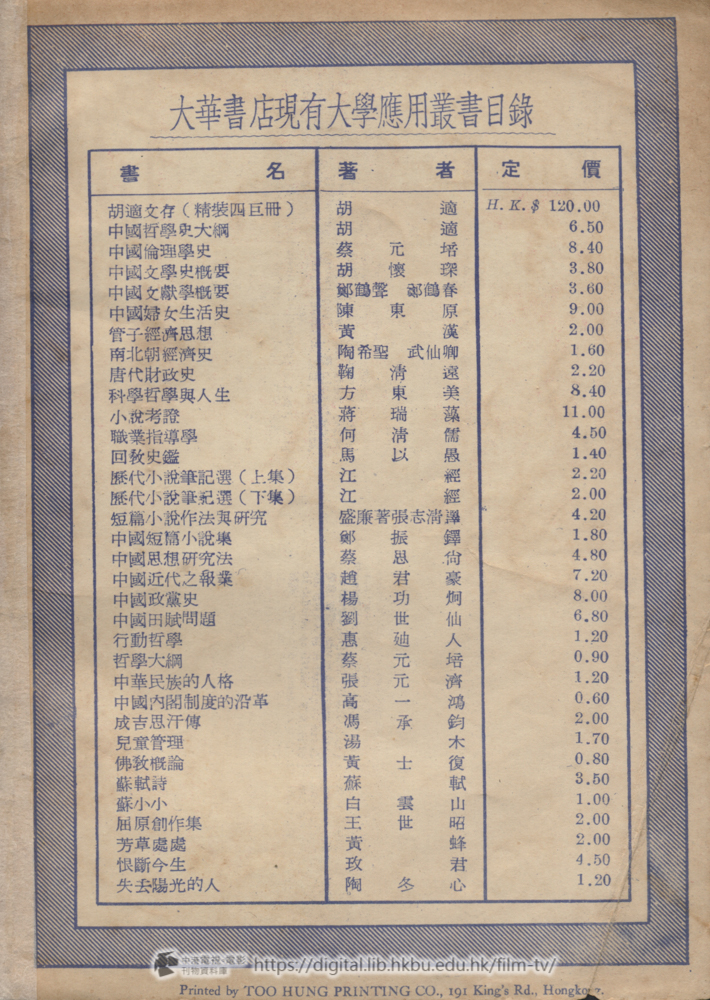 大華書店現有大學應用叢書目錄
書名 著者 定價
胡適文存（精裝四巨冊） 胡適 H. K. $ 120.00
中國哲學史大綱 胡適 6.50
中國倫理學史 蔡元培 8.40
中國文學史概要 胡懷琛 3.80
中國文獻學概要 鄭鶴聲 鄭鶴春 3.60
中國婦女生活史 陳東原 9.00
管子經濟思想 黃漢 2.00
南北朝經濟史 陶希聖 武仙卿 1.60
唐代財政史 鞠清遠 2.20
科學哲學與人生 方東美 8.40
小說考證 蔣瑞藻 11.00
職業指導學 何清儒 4.50
回教史鑑 馬以愚 1.40
歷代小說筆記選（上集） 江經 2.20
歷代小說筆記選（下集） 江經 2.00
短篇小說作法與研究 盛廉著張志清譯 4.20
中國短篇小說集 鄭振鐸 1.80
中國思想研究法 蔡思尙 4.80
中國近代之報業 趙君豪 7.20
中國政黨史 楊功炯 8.00
中國田賦問題 劉世仙 6.80
行動哲學 惠廸人 1.20
哲學大綱 蔡元培 0.90
中華民族的人格 張元濟 1.20
中國內閣制度的沿革 高一鴻 0.60
成吉思汗傳 馮承鈞 2.00
兒童管理 湯木 1.70
佛教概論 黃士復 0.80
蘇軾詩 蘇軾 3.50
蘇小小 白雲山 1.00
屈原創作集 王世昭 2.00
芳草處處 黃蜂 2.00
恨斷今生 玫君 4.50
失去陽光的人 陶冬心 1.20
中港電視·電影
刊物資料庫
https://digital.lib.hkbu.edu.hk/film-tv/
Printed by TOO HUNG PRINTING CO., 191 King's Rd.,